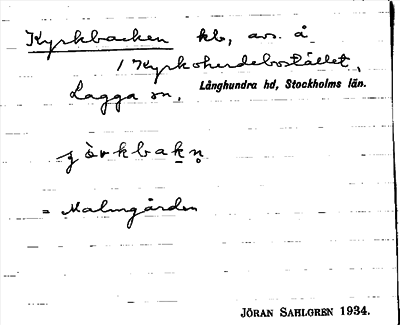 Kyrkbacken kb, avs. å
/ Kyrkoherdebostället,
Lagga sn,
Långhundra hd, Stockholms län.
= Malmgården
JÖRAN SAHLGREN 1934.